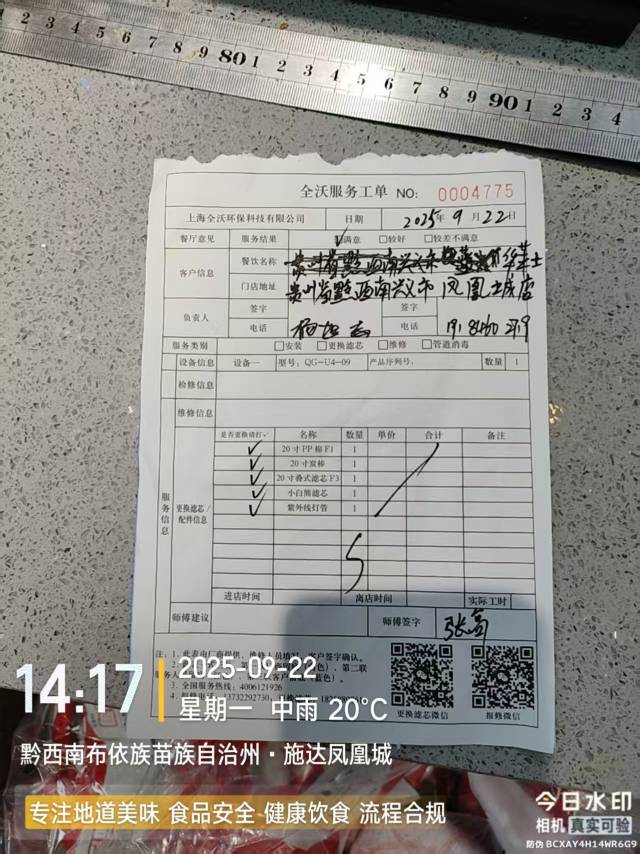 80 1 2 3 4 5 6 7 8 9 90 1 2 3 4
全沃服务工单 NO: 0004775
上海全沃环保科技有限公司 日期 2025年9月22日
餐厅意见 服务结果 ☑满意 □较好 □较差不满意
客户信息 餐饮名称
门店地址 贵州省黔西南兴义市凤凰城店
负责人 签字 签字
电话 电话
服务类别 □安装 □更换滤芯 □维修 □管道消毒
设备信息 设备一 型号: QG-U4-09 产品序列号: 数量 1
检修信息
维修信息
服务信息
更换滤芯/配件信息
是否更换请打√ 名称 数量 单价 合计 备注
✓ 20寸PP棉F1 1
✓ 20寸炭棒 1
✓ 20寸叠式滤芯F3 1
✓ 小白熊滤芯 1
✓ 紫外线灯管 1
进店时间 离店时间 实际工时
师傅建议 师傅签字
注: 1、此表由厂商提供,维修人员填写,客户签字确认。
3、全国服务热线: 4006121926
更换滤芯微信 报修微信
14:17 2025-09-22
星期一 中雨 20°C
黔西南布依族苗族自治州·施达凤凰城
专注地道美味 食品安全 健康饮食 流程合规
今日水印
相机 真实可验
防伪 BCXAY4H14WR6G9